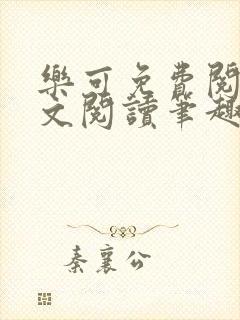 樂可免費閱
文閱讀筆趣
秦襄公